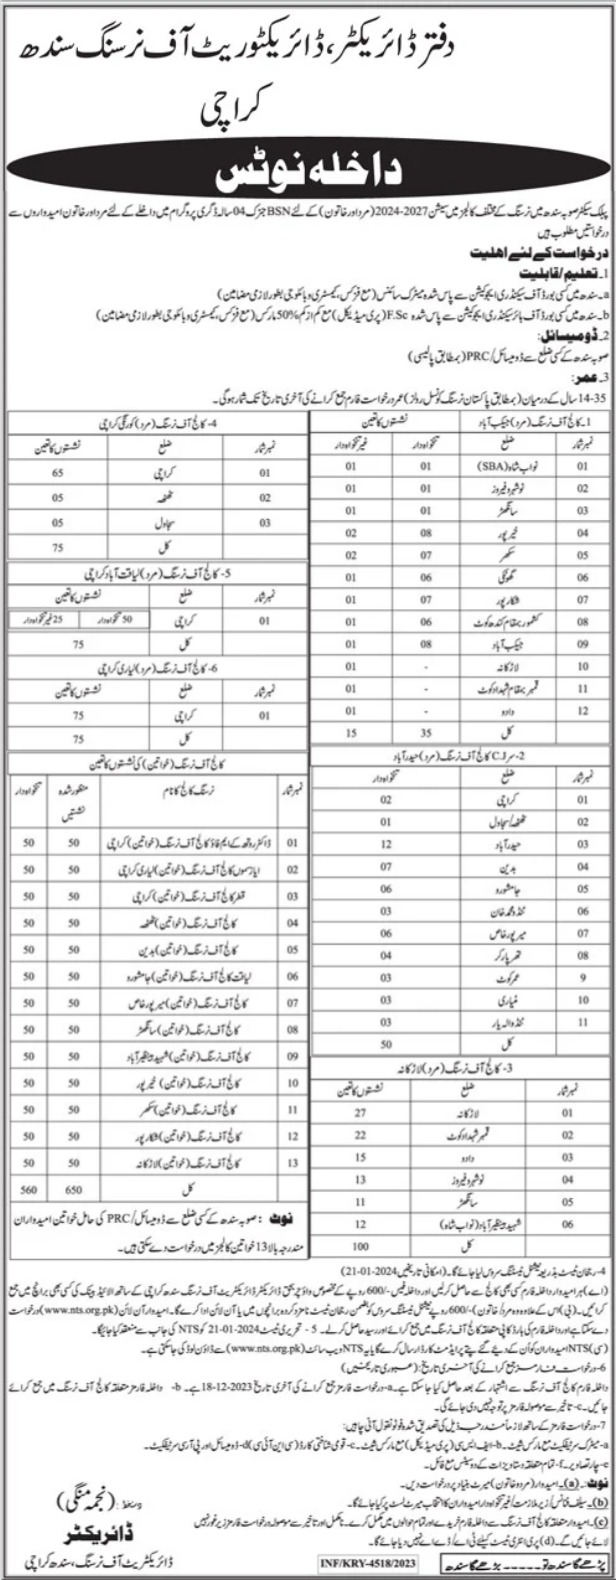 دفتر ڈائریکٹر، ڈائریکٹوریٹ آف نرسنگ سندھ
کراچی
داخلہ نوٹس
پبلک سیکٹر صوبہ سندھ میں نرسنگ کے مختلف کالجز میں سیشن 2027-2024 (مرد اور خاتون) کے لئے BSN جنرک 04 سالہ ڈگری پروگرام میں داخلے کے لئے مرد اور خاتون امیدواروں سے
درخواستیں مطلوب ہیں
درخواست کے لئے اہلیت
1۔ تعلیم/قابلیت
a۔ سندھ میں کسی بورڈ آف سیکنڈری ایجوکیشن سے پاس شدہ میٹرک سائنس (مع فزکس، کیمسٹری و بائیولوجی بطور لازمی مضامین)
b۔ سندھ میں کسی بورڈ آف ہائر سیکنڈری ایجوکیشن سے پاس شدہ F.Sc (پری میڈیکل) مع کم از کم 50% مارکس (مع فزکس، کیمسٹری و بائیولوجی بطور لازمی مضامین)
2۔ ڈومیسائل:
صوبہ سندھ کے کسی ضلع سے ڈومیسائل/PRC (بمطابق پالیسی)
3۔ عمر:
14-35 سال کے درمیان (بمطابق پاکستان نرسنگ کونسل رولز) عمر درخواست فارم جمع کرانے کی آخری تاریخ تک شمار ہوگی۔
1۔ کالج آف نرسنگ (مرد) جیکب آباد نشستوں کا تعین
نمبر شمار ضلع تنخواہ دار غیر تنخواہ دار
01 نواب شاہ (SBA) 01 01
02 نوشہرو فیروز 01 01
03 سانگھڑ 01 01
04 خیرپور 08 02
05 سکھر 07 02
06 گھوٹکی 06 01
07 شکارپور 07 01
08 کشمور بمقام کندھ کوٹ 06 01
09 جیکب آباد 08 01
10 لاڑکانہ - 01
11 قمبر بمقام شہدادکوٹ - 01
12 دادو - 01
کل 35 15
2- سر C.J کالج آف نرسنگ (مرد) حیدرآباد
نمبر شمار ضلع تنخواہ دار
01 کراچی 02
02 ٹھٹھہ/سجاول 01
03 حیدرآباد 12
04 بدین 07
05 جامشورو 06
06 ٹنڈو محمد خان 03
07 میرپورخاص 06
08 تھرپارکر 04
9 عمرکوٹ 03
10 مٹیاری 03
11 ٹنڈوالہ یار 03
کل 50
3- کالج آف نرسنگ (مرد) لاڑکانہ
نمبر شمار ضلع نشستوں کا تعین
01 لاڑکانہ 27
02 قمبر شہدادکوٹ 22
03 دادو 15
04 نوشہرو فیروز 13
05 سانگھڑ 11
06 شہید بینظیر آباد (نواب شاہ) 12
کل 100
4- کالج آف نرسنگ (مرد) کورنگی کراچی
نمبر شمار ضلع نشستوں کا تعین
01 کراچی 65
02 ٹھٹھہ 05
03 سجاول 05
کل 75
5- کالج آف نرسنگ (مرد) لیاقت آباد کراچی
نمبر شمار ضلع نشستوں کا تعین
01 کراچی 50 تنخواہ دار 25 غیر تنخواہ دار
کل 75
6- کالج آف نرسنگ (مرد) لیاری کراچی
نمبر شمار ضلع نشستوں کا تعین
01 کراچی 75
کل 75
کالج آف نرسنگ (خواتین) کی نشستوں کا تعین
نمبر شمار نرسنگ کالج کا نام منظور شدہ نشستیں تنخواہ دار
01 ڈاکٹر روتھ کے ایم فاؤ کالج آف نرسنگ (خواتین) کراچی 50 50
02 کالج آف نرسنگ (خواتین) لیاری کراچی 50 50
03 قطر کالج آف نرسنگ (خواتین) کراچی 50 50
04 کالج آف نرسنگ (خواتین) ٹھٹھہ 50 50
05 کالج آف نرسنگ (خواتین) بدین 50 50
06 لیاقت کالج آف نرسنگ (خواتین) جامشورو 50 50
07 کالج آف نرسنگ (خواتین) میرپورخاص 50 50
08 کالج آف نرسنگ (خواتین) سانگھڑ 50 50
09 کالج آف نرسنگ (خواتین) شہید بینظیر آباد 50 50
10 کالج آف نرسنگ (خواتین) خیرپور 50 50
11 کالج آف نرسنگ (خواتین) سکھر 50 50
12 کالج آف نرسنگ (خواتین) شکارپور 50 50
13 کالج آف نرسنگ (خواتین) لاڑکانہ 50 50
کل 650 560
نوٹ: صوبہ سندھ کے کسی ضلع سے ڈومیسائل/PRC کی حامل خواتین امیدواران
مندرجہ بالا 13 خواتین کالجز میں درخواست دے سکتی ہیں۔
4- رجحان ٹیسٹ بذریعہ نیشنل ٹیسٹنگ سروس لیا جائے گا۔ (امکانی تاریخیں 2024-01-21)
(اے) ہر امیدوار داخلہ فارم کسی بھی کالج سے حاصل کر لیں اور داخلہ فیس -/600 روپے کے مخصوص واؤچر بحق ڈائریکٹر ڈائریکٹوریٹ آف نرسنگ سندھ کراچی کے ساتھ الائیڈ بینک کی کسی بھی برانچ میں جمع
کرائیں۔ (بی) اس کے علاوہ وہ مرد/خاتون -/600 روپے نیشنل ٹیسٹنگ سروس کو بضمن رجحان ٹیسٹ نامزد کردہ برانچوں میں یا آن لائن ادا کرے گا۔ امیدوار آن لائن (www.nts.org.pk) درخواست
دے سکتا ہے اور داخلہ فارم کی ہارڈ کاپی متعلقہ کالج آف نرسنگ میں جمع کرائے اور رسید حاصل کر لے۔ 5 - تحریری ٹیسٹ 2024-01-21 کو NTS کی جانب سے منعقد کیا جائیگا۔
(سی) NTS امیدواران کو ان کے دیئے گئے پتے پر ایڈمٹ کارڈ ارسال کرے گا یا یہ NTS ویب سائٹ (www.nts.org.pk) سے ڈاؤن لوڈ کی جاسکتی ہے۔
6- درخواست فارمز جمع کرانے کی آخری تاریخ: (عبوری تاریخیں)
داخلہ فارم کالج آف نرسنگ سے اشتہار کے بعد حاصل کیا جا سکتا ہے۔ a- درخواست فارمز جمع کرانے کی آخری تاریخ 2023-12-18 ہے۔ b- داخلہ فارمز متعلقہ کالج آف نرسنگ میں جمع کرائے
جائیں۔ c- تاخیر سے موصولہ فارمز پر توجہ نہیں دی جائے گی۔
7- درخواست فارمز کے ساتھ لازماً مندرجہ ذیل کی تصدیق شدہ فوٹو نقول آنی چاہیں:
a- میٹرک سرٹیفکیٹ مع مارکس شیٹ۔ b- ایف ایس سی (پری میڈیکل) مع مارکس شیٹ۔ c- قومی شناختی کارڈ (سی این آئی سی) d- ڈومیسائل اور پی آر سی سرٹیفکیٹ۔
e- چار تصاویر۔ f- تمام متعلقہ دستاویزات کے دو سیٹس مع فائل۔
نوٹ: (a)۔ امیدوار (مرد و خاتون) میرٹ بنیاد پر درخواست دیں۔
(b)۔ سیلف فنانس/زیر ملازمت/غیر تنخواہ دار امیدواران کا انتخاب میرٹ لسٹ پر کیا جائے گا۔
(c)۔ امیدوار متعلقہ کالج آف نرسنگ سے داخلہ فارم خریدے اور تمام حوالوں میں مکمل کرے۔ نامکمل اور تاخیر سے موصولہ درخواست فارمز زیر غور نہیں
لائے جائیں گے۔ (d) پری انٹری ٹیسٹ کیلئے ٹی اے/ڈی اے نہیں دیا جائے گا۔
دستخط: (نجمہ منگی)
ڈائریکٹر
ڈائریکٹوریٹ آف نرسنگ، سندھ کراچی
INF/KRY-4518/2023
پڑھے گا سندھ تو۔۔۔۔۔۔ بڑھے گا سندھ